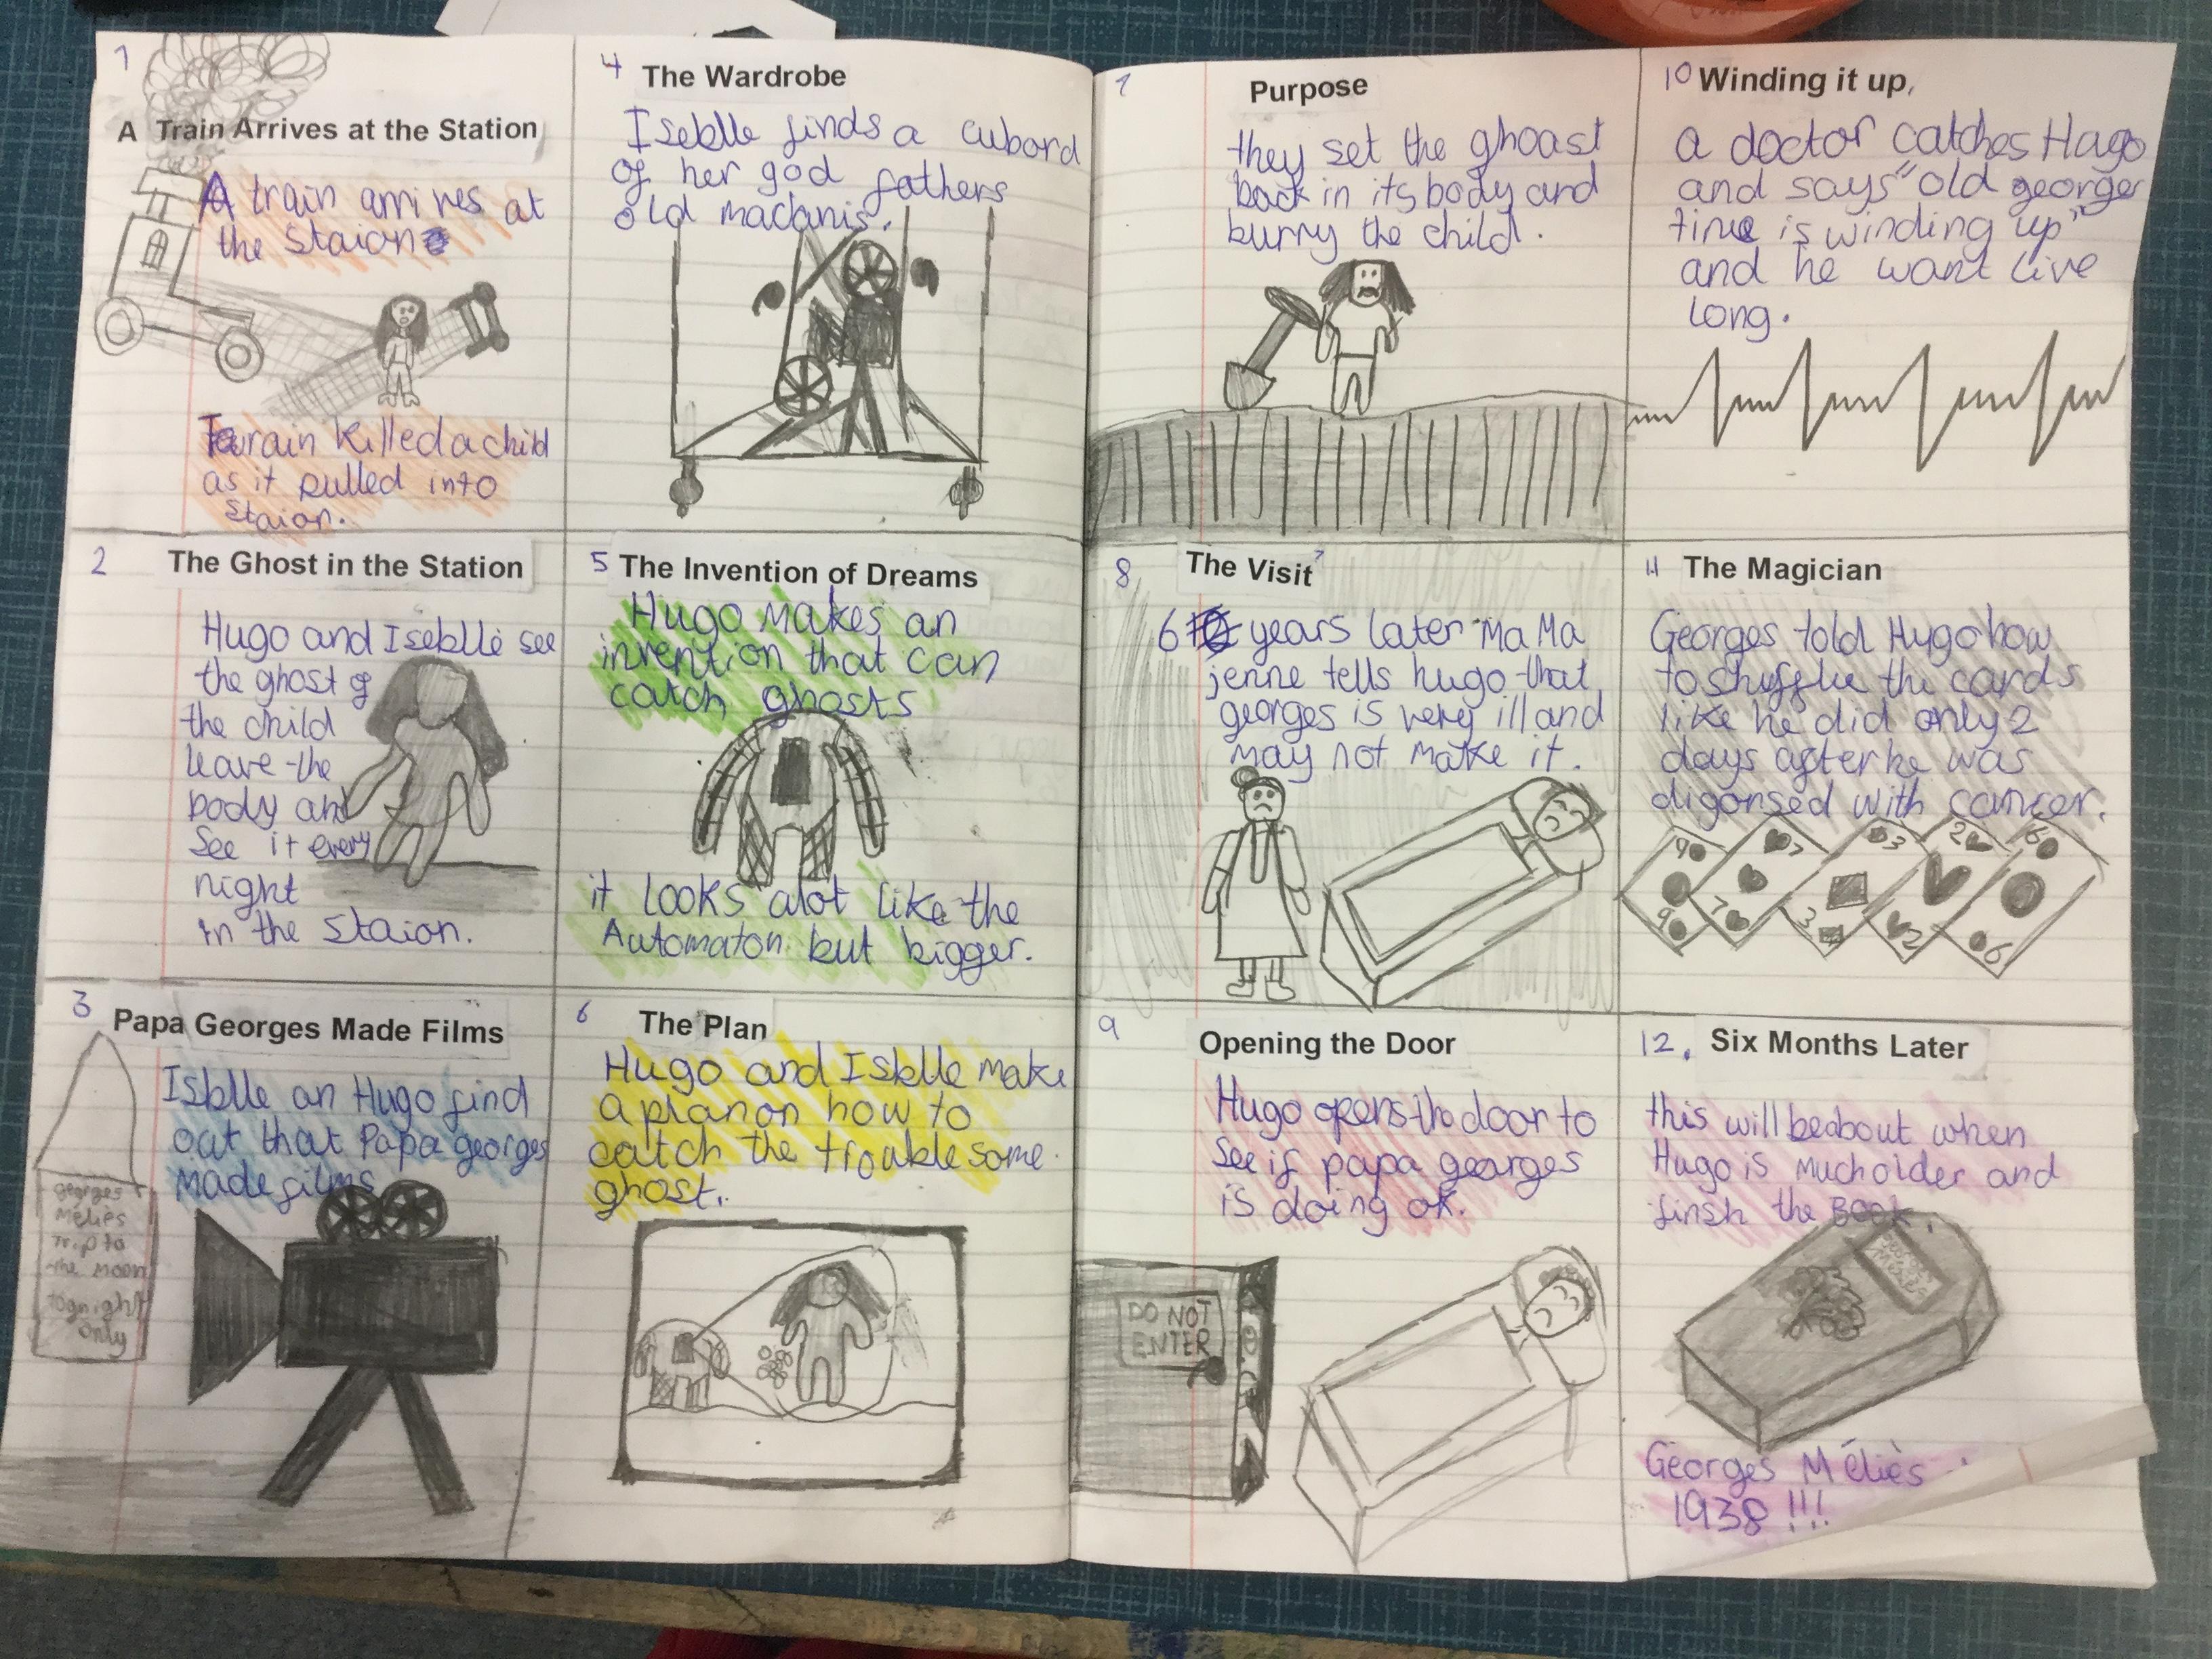 1
A Train Arrives at the Station
A train arrives at
the Staion
Train killed a child
as it pulled into
Staion.
2 The Ghost in the Station
Hugo and Iseblle see
the ghost of
the child
leave the
body and
See it every
night
in the Staion.
3 Papa Georges Made Films
Isblle an Hugo find
out that Papa georges
made films
georges
Méliès
Trip to
the moon
tognight
only
4 The Wardrobe
Iseblle finds a cubord
of her god fathers
old macanis.
5 The Invention of Dreams
Hugo makes an
invention that can
catch ghosts
it looks alot like the
Automaton but bigger.
6 The Plan
Hugo and Isblle make
a plan on how to
catch the trouble some
ghost.
7 Purpose
they set the ghoast
back in its body and
burry the child.
8 The Visit
6 years later Ma Ma
jenne tells hugo that
georges is very ill and
may not make it.
9 Opening the Door
Hugo opens the door to
See if papa georges
is doing ok.
DO NOT
ENTER
10 Winding it up,
a doctor catches Hugo
and says "old georges
time is winding up"
and he want live
long.
11 The Magician
Georges told Hugo how
to shuffle the cards
like he did only 2
days after he was
digonsed with cancer.
9 7 3 2 6
9 7 3 2 6
12. Six Months Later
this will be about when
Hugo is much older and
finsh the Book.
Georges Méliès
1938 !!!